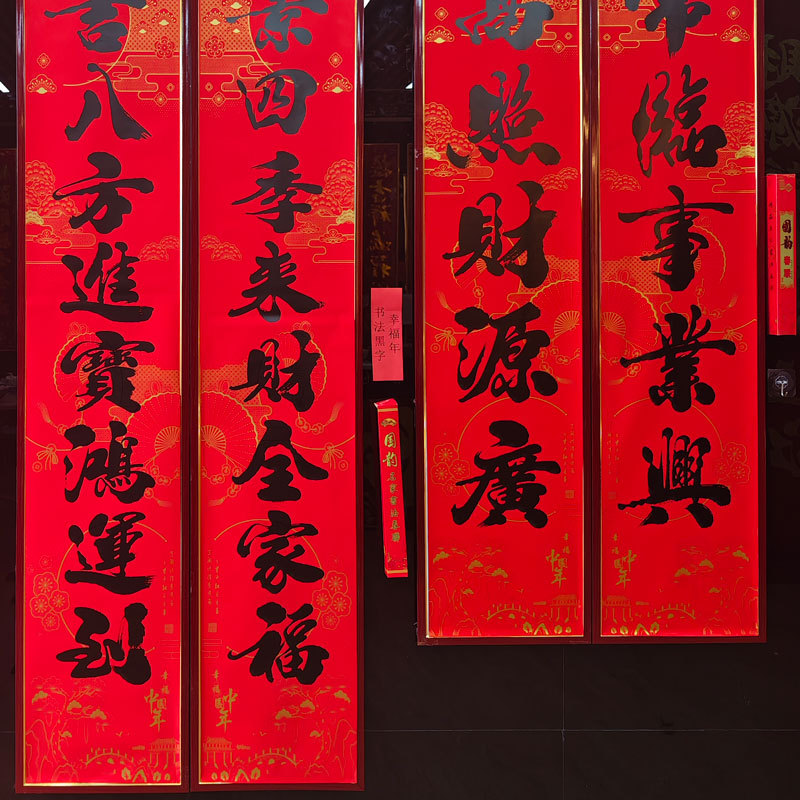 臨事業興
高照財源廣
四季来財全家福
八方進寶鴻運到
幸福年
书法黑字
国韵
国韵春联
幸福中国年
幸福中国年
幸福中国年
幸福中国年